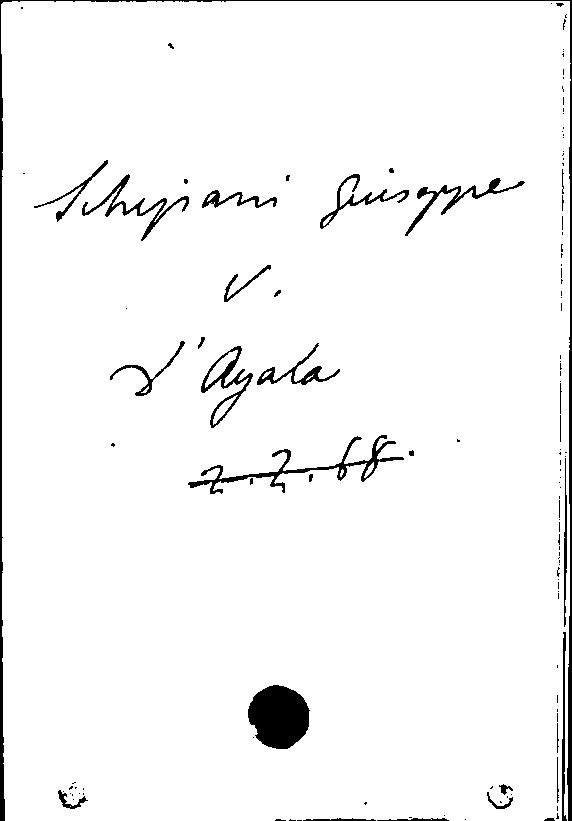 Schipani Giuseppe
V.
D'Ayala
2.2.68.